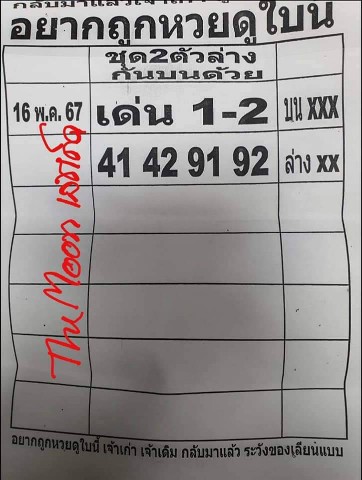 อยากถูกหวยดูใบนี้
ชุด2ตัวล่าง
กันบนด้วย
16 พ.ค. 67 เด่น 1-2 บน XXX
41 42 91 92 ล่าง xx
The Moon
อยากถูกหวยดูใบนี้ เจ้าเก่า เจ้าเดิม กลับมาแล้ว ระวังของเลียนแบบ